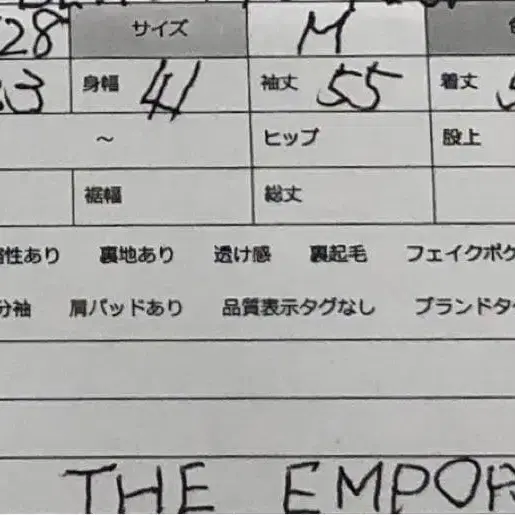 28 サイズ M
33 身幅 41 袖丈 55 着丈
～ ヒップ 股上
裾幅 総丈
性あり 裏地あり 透け感 裏起毛 フェイクポケ
分袖 肩パッドあり 品質表示タグなし ブランドタ
THE EMPOR